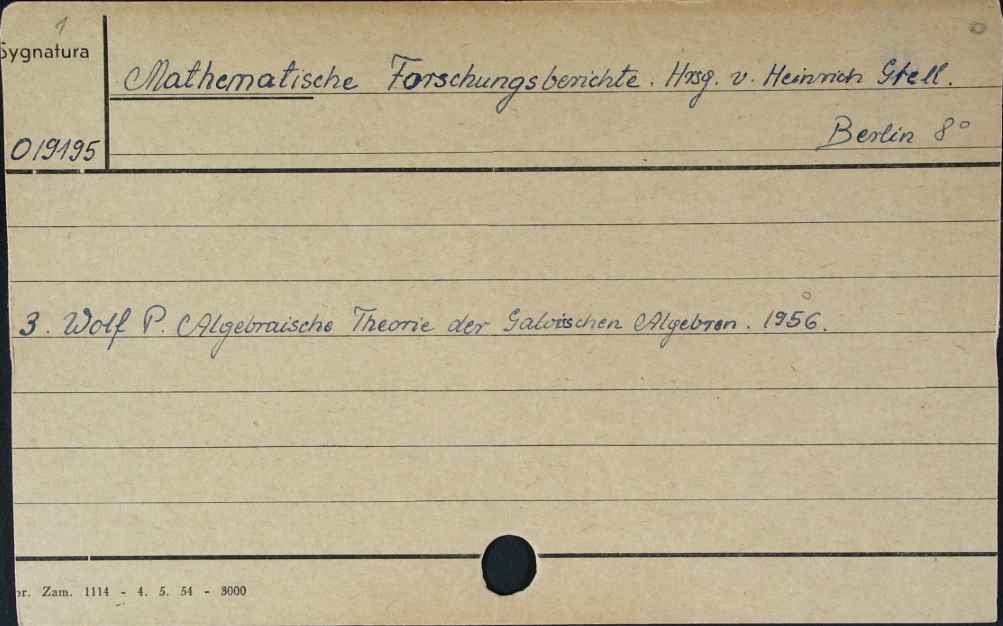 1
Sygnatura
Mathematische Forschungsberichte. Hrsg. v. Heinrich Grell.
Berlin 8°
019195
3. Wolf P. Algebraische Theorie der Galoisschen Algebren. 1956.
or. Zam. 1114 - 4. 5. 54 - 3000